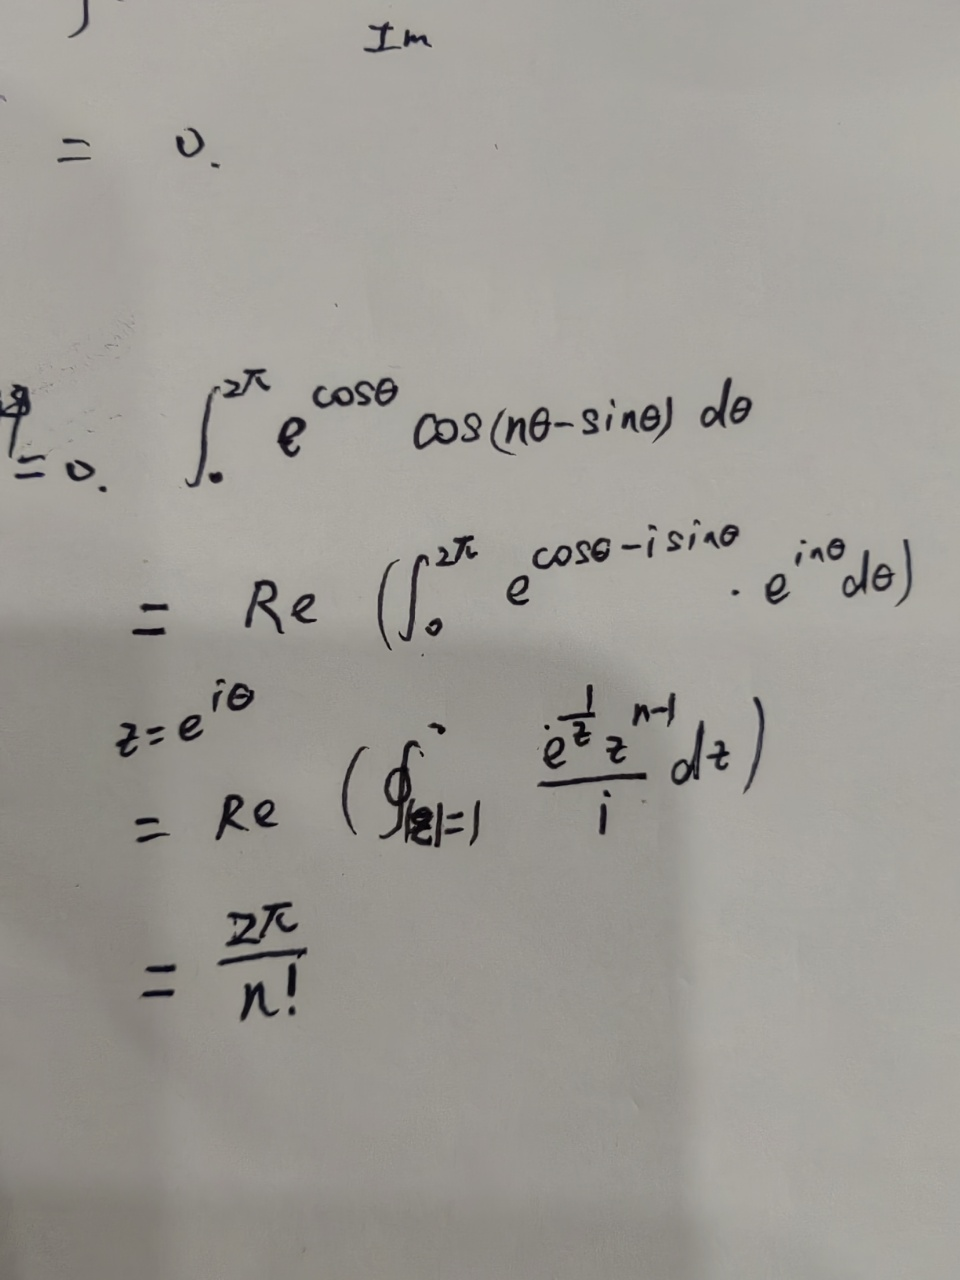 Im
= 0.
∫₀^{2π} e^{cosθ} cos(nθ-sinθ) dθ
=0.
= Re (∫₀^{2π} e^{cosθ-isinθ} · e^{inθ} dθ)
z=e^{iθ}
= Re (∮_{|z|=1} \frac{e^{\frac{1}{z}} z^{n-1}}{i} dz)
= \frac{2π}{n!}